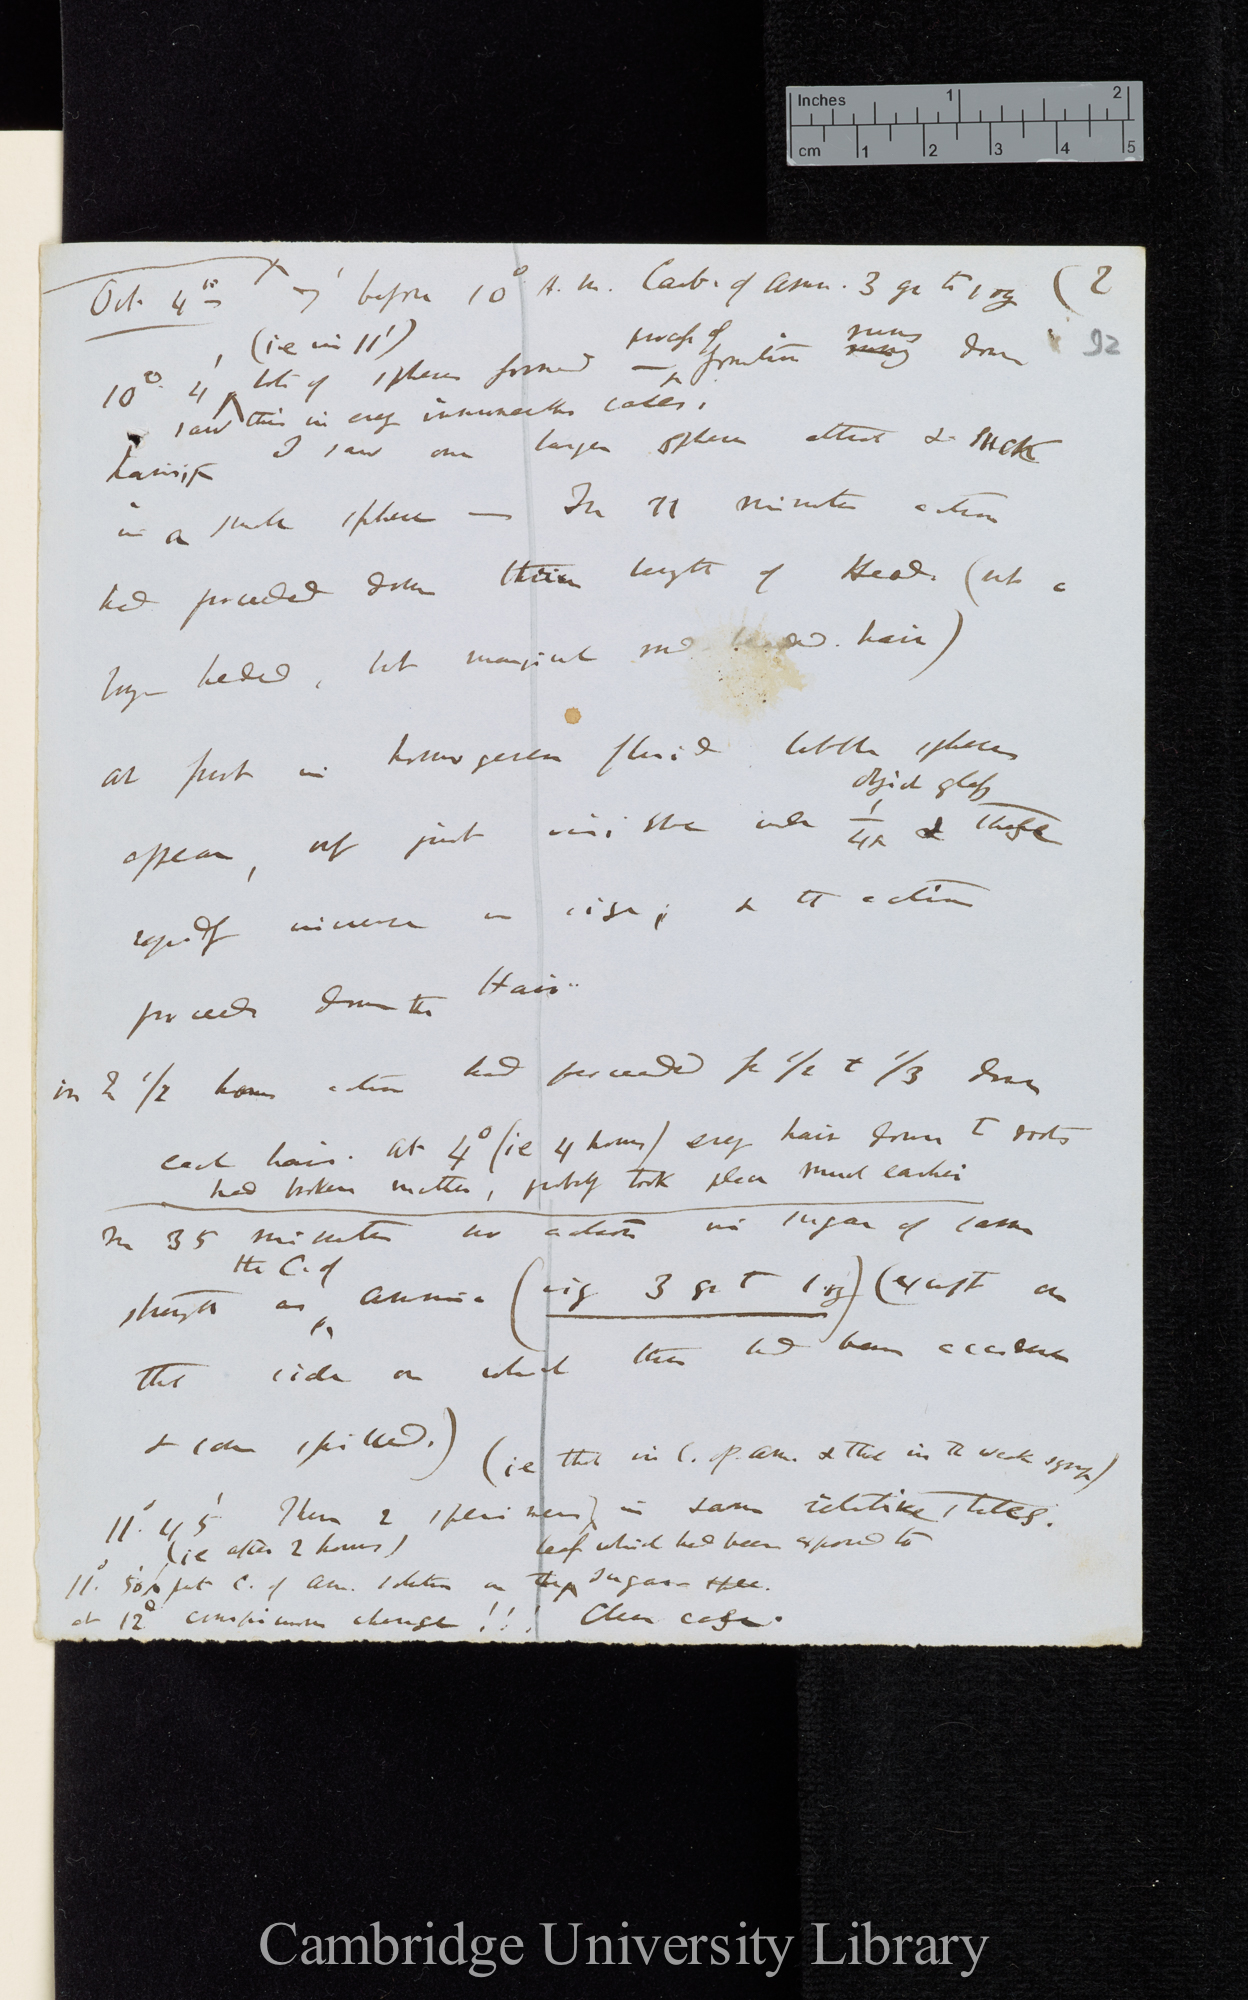 Inches 1 2
cm 1 2 3 4 5
Oct. 4th 7' before 10° A.m. Carb. of Amm. 3 gr to 1 oz (2
92
(ie in 11')
10° 4', lots of spheres formed — process of formation runs down
I saw this in every innumerable cases.
hairs; I saw one larger sphere attract & suck
in a small sphere — In 11 minutes action
had proceeded down thrice length of Head. (not a
long headed, but marginal round headed hair)
at first in homogeneous fluid little spheres
object glass
appear, only just visible under 1/4 & these
rapidly increase in size; & the action
proceeds down the Hair.
in 2 1/2 hours action had proceeded for 1/2 to 1/3 down
each hair. at 4° (ie 4 hours) every hair down to roots
had broken matter, probably took place much earlier
In 35 minutes no action in sugar of same
the C. of
strength as Ammonia (viz 3 gr to 1 oz) (except on
the side on which there had been accident
& some spilled.) (ie that in C. of Am. & that in the weak syrup)
11° 45' These 2 specimens in same relative states.
(ie after 2 hours) leaf which had been exposed to
11° 50' put C. of Am. solution on the Sugar
at 12° conspicuous change!!! Clear case.
Cambridge University Library